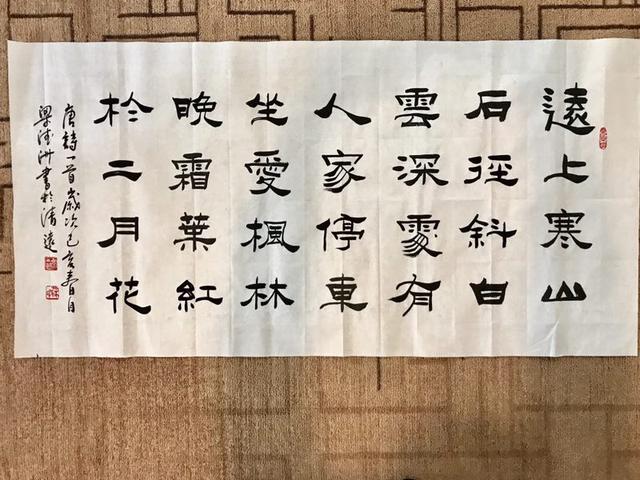 遠上寒山
石徑斜白
雲深處有
人家停車
坐愛楓林
晚霜葉紅
於二月花
唐詩一首歲次己亥春日
梁洲書於清遠